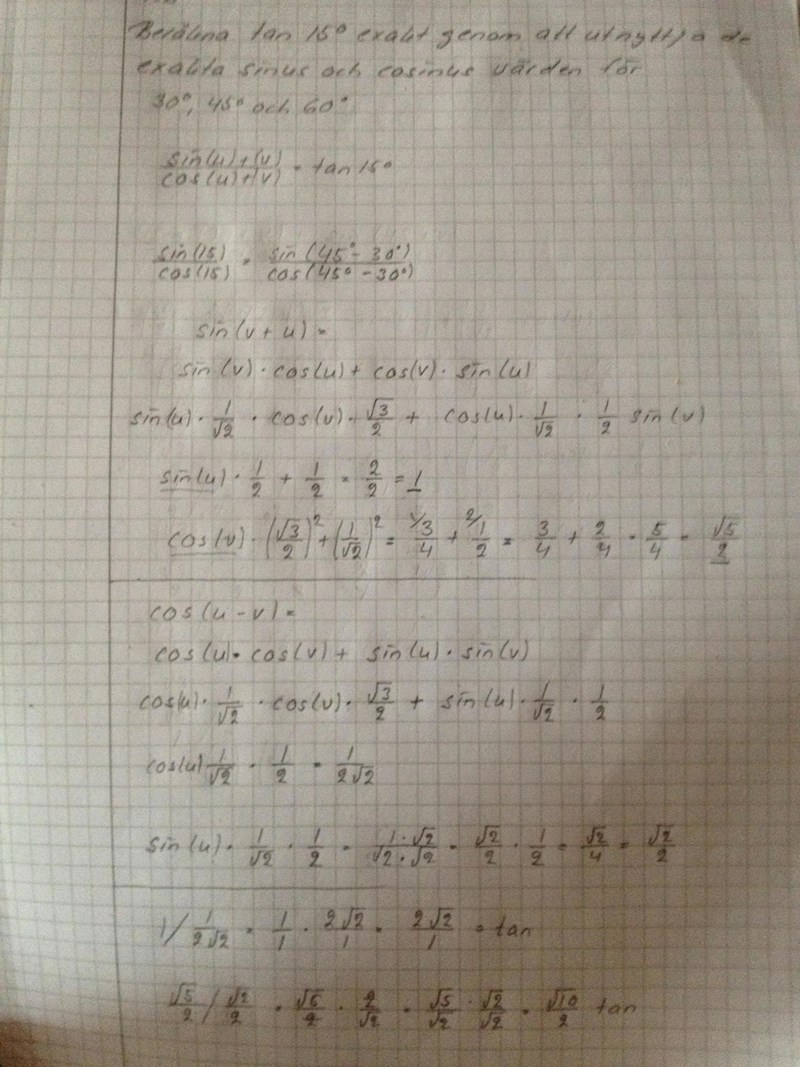 Beräkna tan 15° exakt genom att utnyttja de
exakta sinus och cosinus värden för
30°, 45° och 60°
sin(u)+(v)/cos(u)+(v) = tan 15°
sin(15)/cos(15) = sin(45°-30°)/cos(45°-30°)
sin(v+u) =
sin(v)·cos(u)+cos(v)·sin(u)
sin(u)·1/√2·cos(v)·√3/2 + cos(u)·1/√2·1/2 sin(v)
sin(u)·1/2 + 1/2 = 2/2 = 1
cos(v)·(√3/2)²+(1/√2)² = 1/3/4 + 2/1/2 = 3/4 + 2/4 = 5/4 = √5/2
cos(u-v) =
cos(u)·cos(v)+ sin(u)·sin(v)
cos(u)·1/√2·cos(v)·√3/2 + sin(u)·1/√2·1/2
cos(u) 1/√2·1/2 = 1/2√2
sin(u)·1/√2·1/2 = 1·√2/√2·√2 = √2/2·1/2 = √2/4 = √2/2
1/1/2√2 = 1/1·2√2/1 = 2√2/1 = tan
√5/2/√2/2 = √5/2·2/√2 = √5/√2·√2/√2 = √10/2 tan